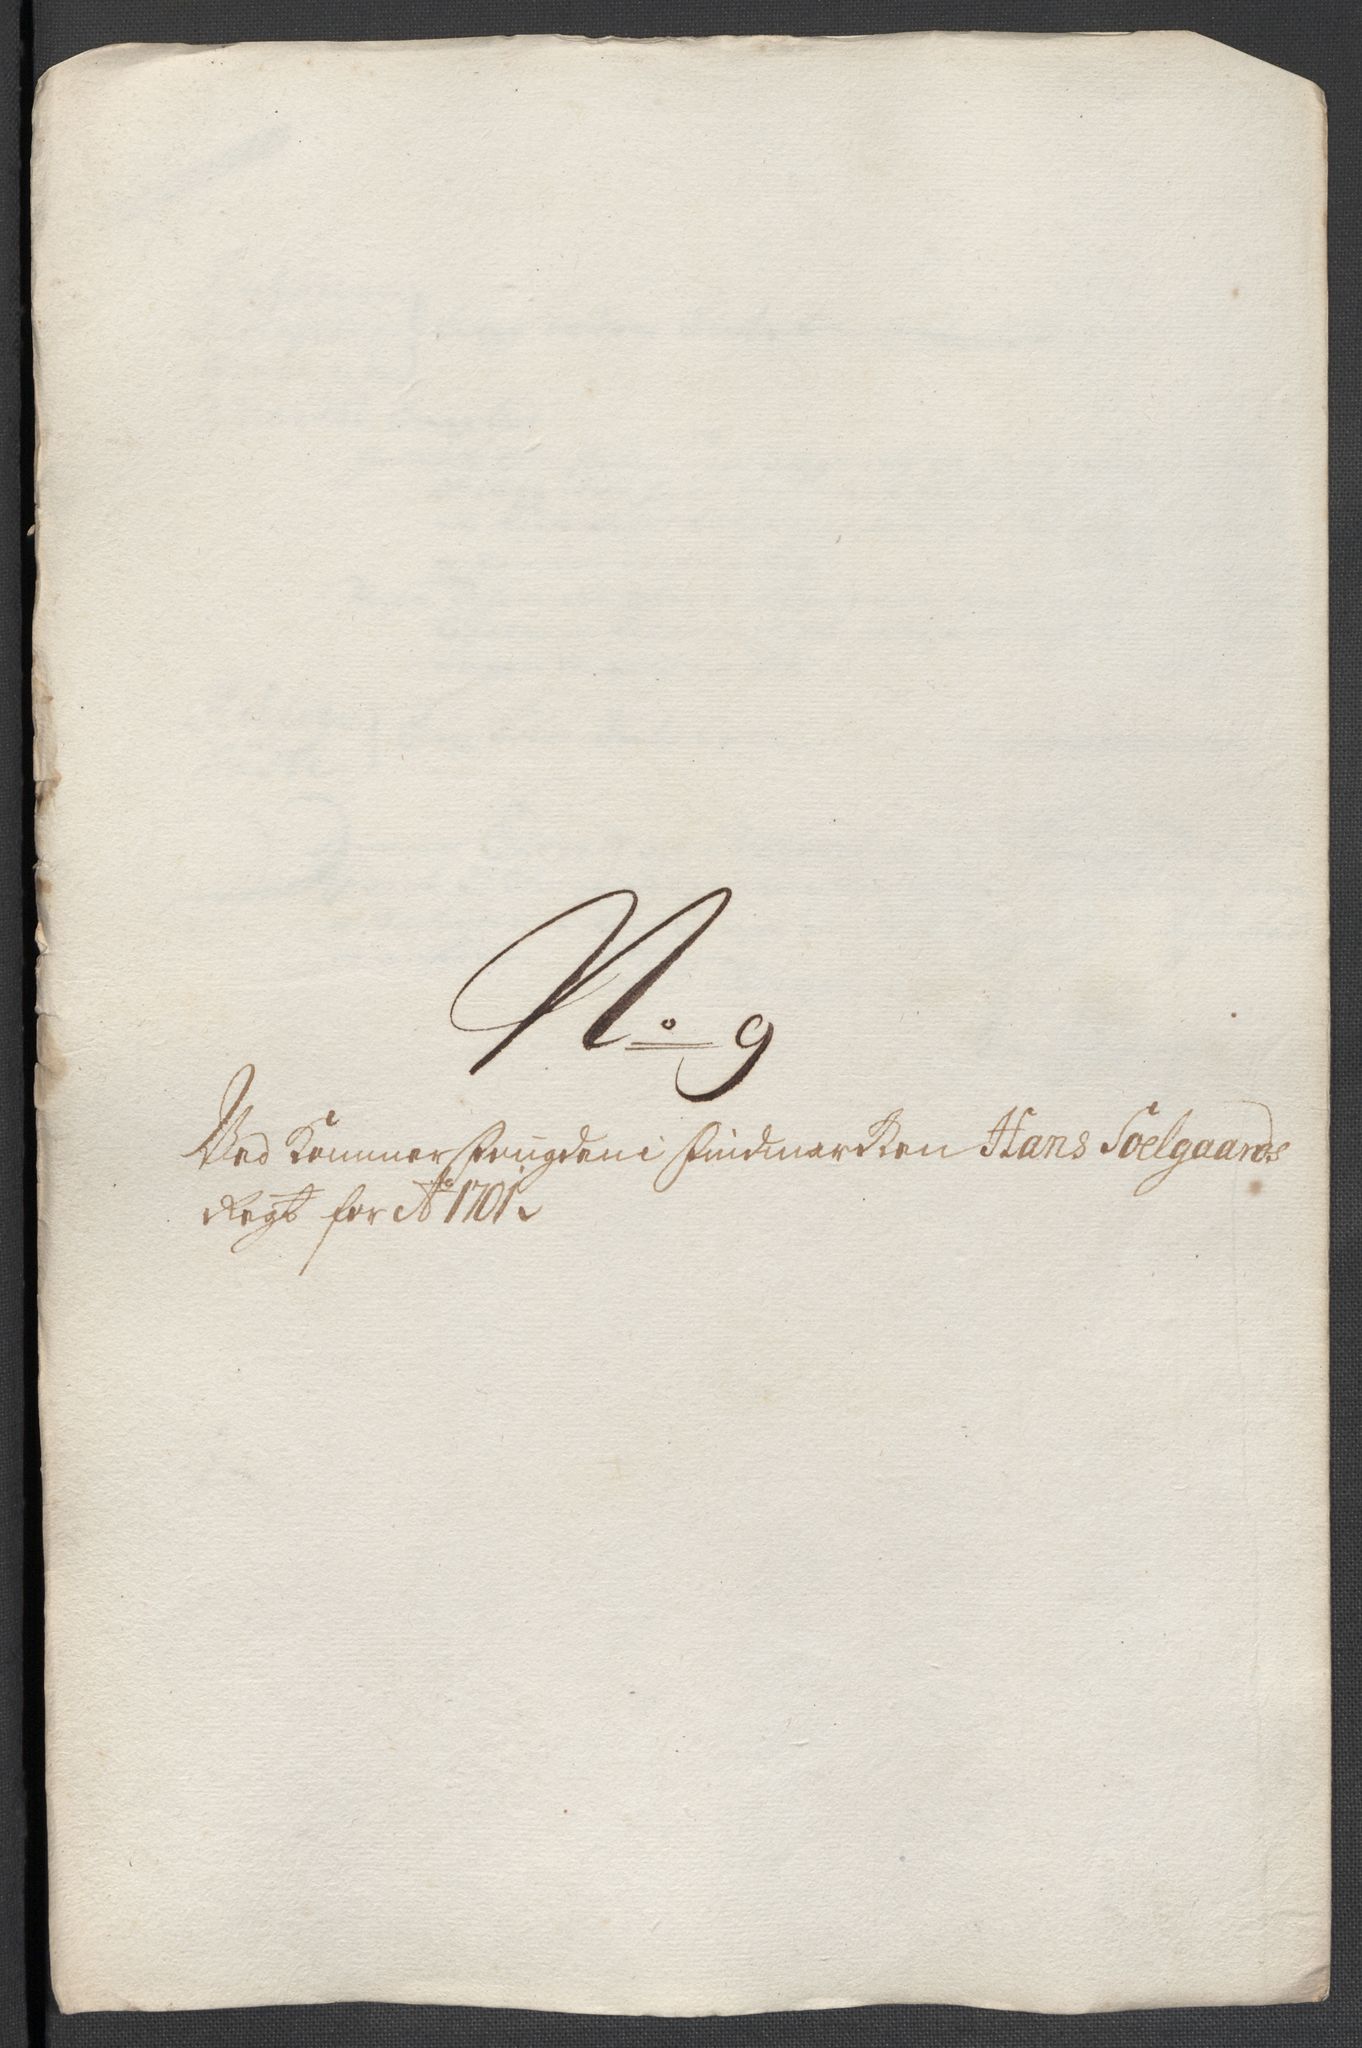 No 9
Ved Kammerfougden i Findmarcken Hans Soelgaards
Regt for Ao 1701